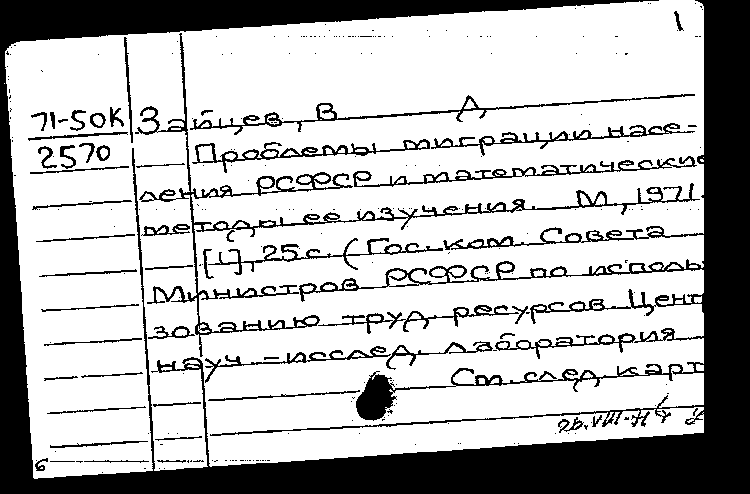 1
71-50К Зайцев, В Д
2570 Проблемы миграции насе-
ления РСФСР и математические
методы ее изучения. М., 1971.
[1], 25 с. (Гос. ком. Совета
Министров РСФСР по исполь
зованию труд. ресурсов. Цент
науч. -исслед. лаборатория
См. след. карт
26.VIII-71
6